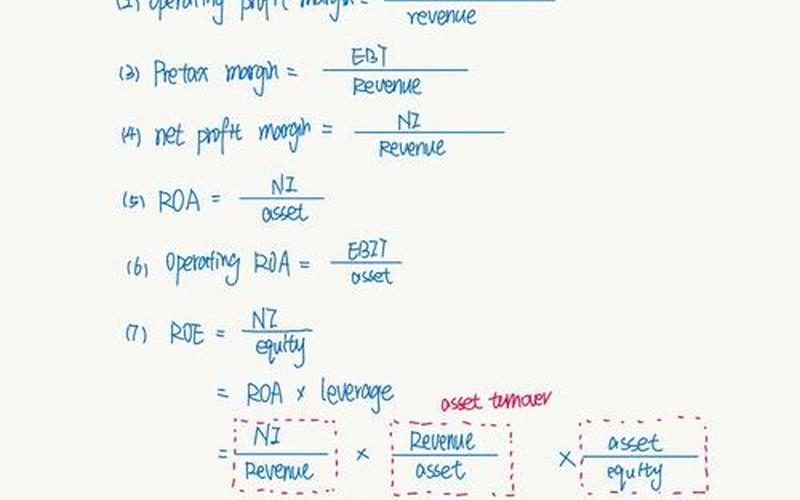 (2) operating profit margin =
revenue
(3) Pretax margin = EBT / Revenue
(4) net profit margin = NI / Revenue
(5) ROA = NI / asset
(6) Operating ROA = EBIT / asset
(7) ROE = NI / equity
= ROA × leverage
asset turnover
= NI / Revenue × Revenue / asset × asset / equity